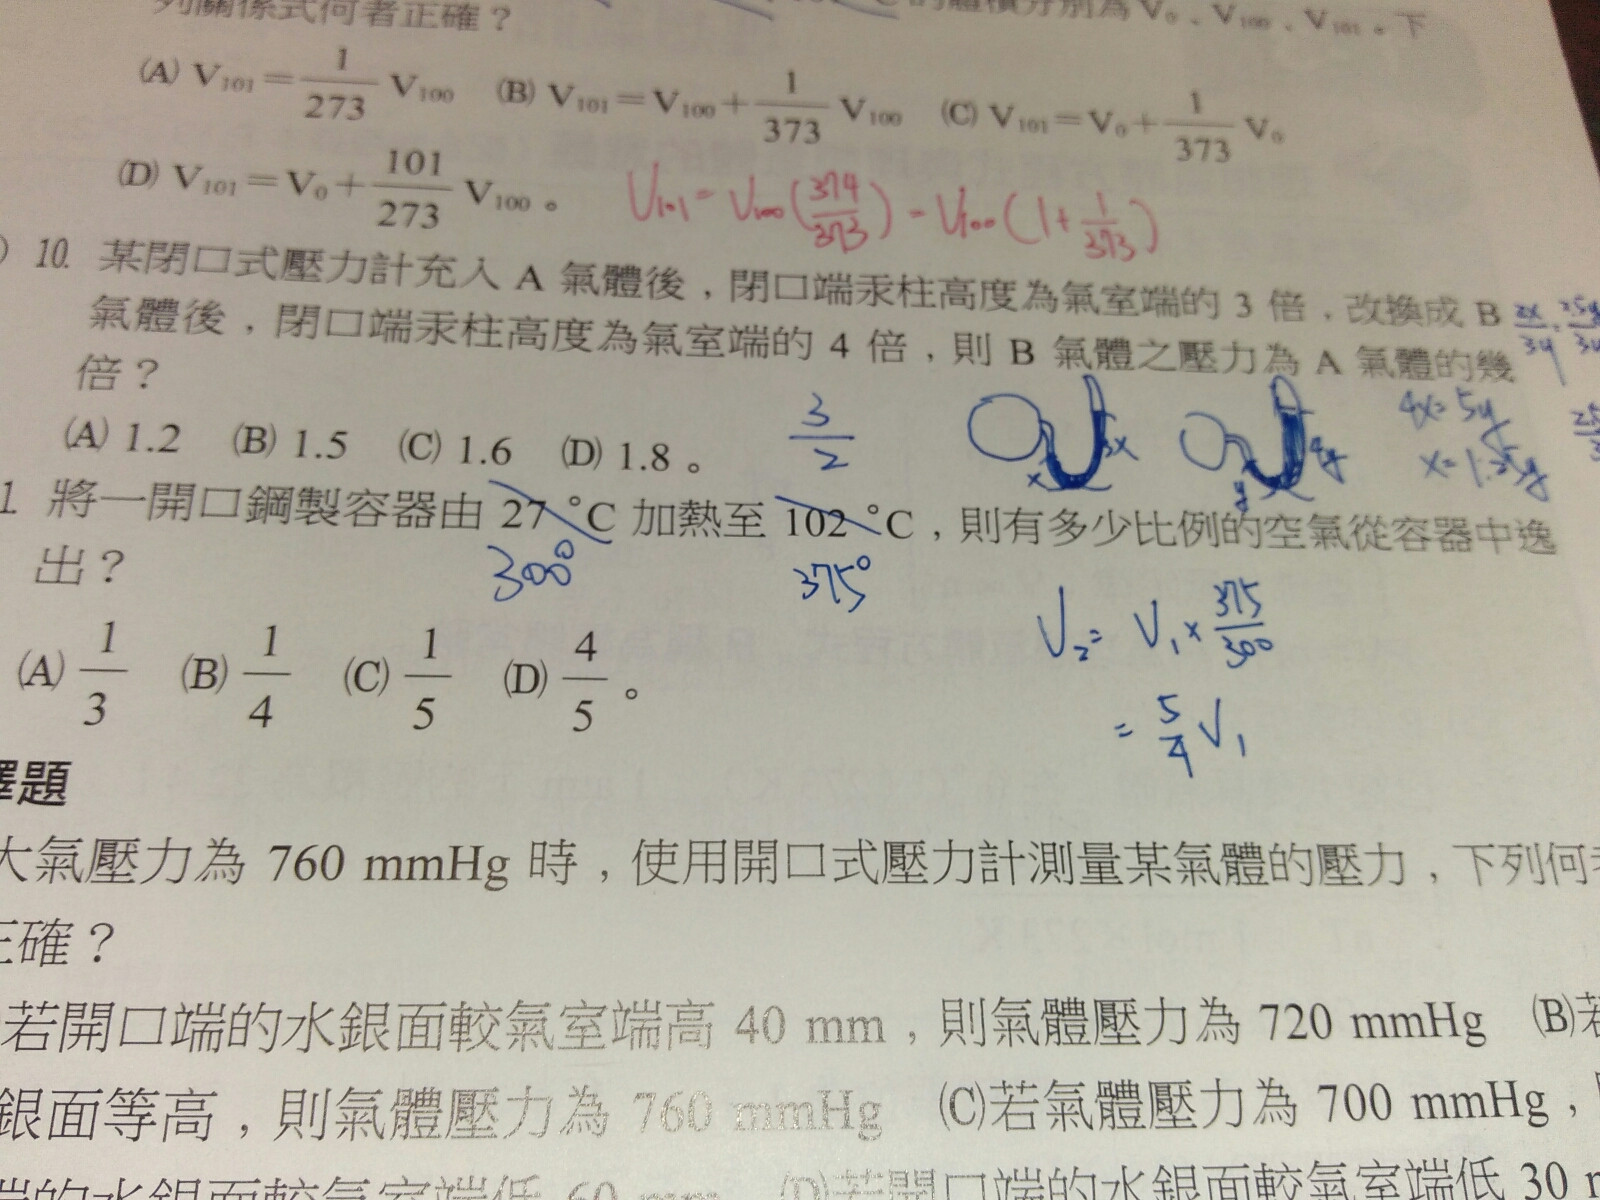 列關係式何者正確？ 的體積分別為 V₀、V₁₀₀、V₁₀₁。下
(A) V₁₀₁＝1/273 V₁₀₀ (B) V₁₀₁＝V₁₀₀＋1/373 V₁₀₀ (C) V₁₀₁＝V₀＋1/373 V₀
(D) V₁₀₁＝V₀＋101/273 V₁₀₀。
V₁₀₁= V₁₀₀(374/373) = V₁₀₀(1+1/373)
) 10. 某閉口式壓力計充入 A 氣體後，閉口端汞柱高度為氣室端的 3 倍，改換成 B
氣體後，閉口端汞柱高度為氣室端的 4 倍，則 B 氣體之壓力為 A 氣體的幾
倍？
2x/3y
(A) 1.2 (B) 1.5 (C) 1.6 (D) 1.8。
3/2
x 3x
y 4y
4x=5y
x=1.25y
1. 將一開口鋼製容器由 27 °C 加熱至 102 °C，則有多少比例的空氣從容器中逸
出？
300° 375°
V₂= V₁×375/300
= 5/4 V₁
(A) 1/3 (B) 1/4 (C) 1/5 (D) 4/5。
擇題
大氣壓力為 760 mmHg 時，使用開口式壓力計測量某氣體的壓力，下列何者
正確？
若開口端的水銀面較氣室端高 40 mm，則氣體壓力為 720 mmHg (B)若
銀面等高，則氣體壓力為 760 mmHg (C)若氣體壓力為 700 mmHg，
端的水銀面較氣室端低 60 mm (D)若開口端的水銀面較氣室端低 30